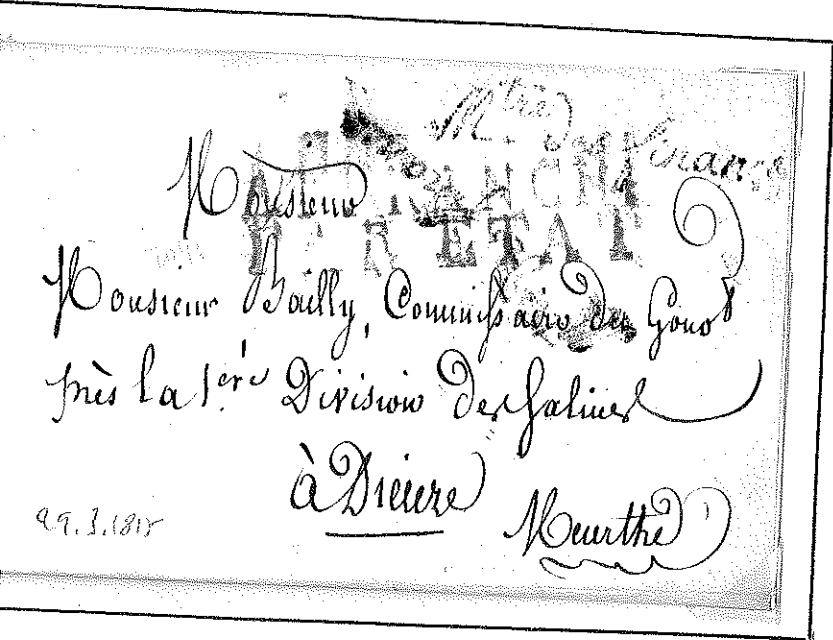 Mtre des Finances
AFFRANCHI
PAR ETAT
Monsieur
Monsieur Bailly, Commissaire du Gouvt
près la 1ère Division des Salines
à Dieuze
Meurthe
29.3.1818